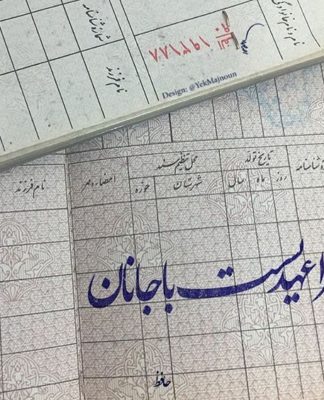 نام و نام خانوادگی
شماره شناسنامه
نام فرزند
الف
۱۹۳۱۸۸
Design: @YekMajnoun
شناسنامه
تاریخ تولد
روز
ماه
سال
محل تنظیم سند
شهرستان
حوزه
امضاء و مهر
نام فرزند
را عهدیست با جانان
حافظ